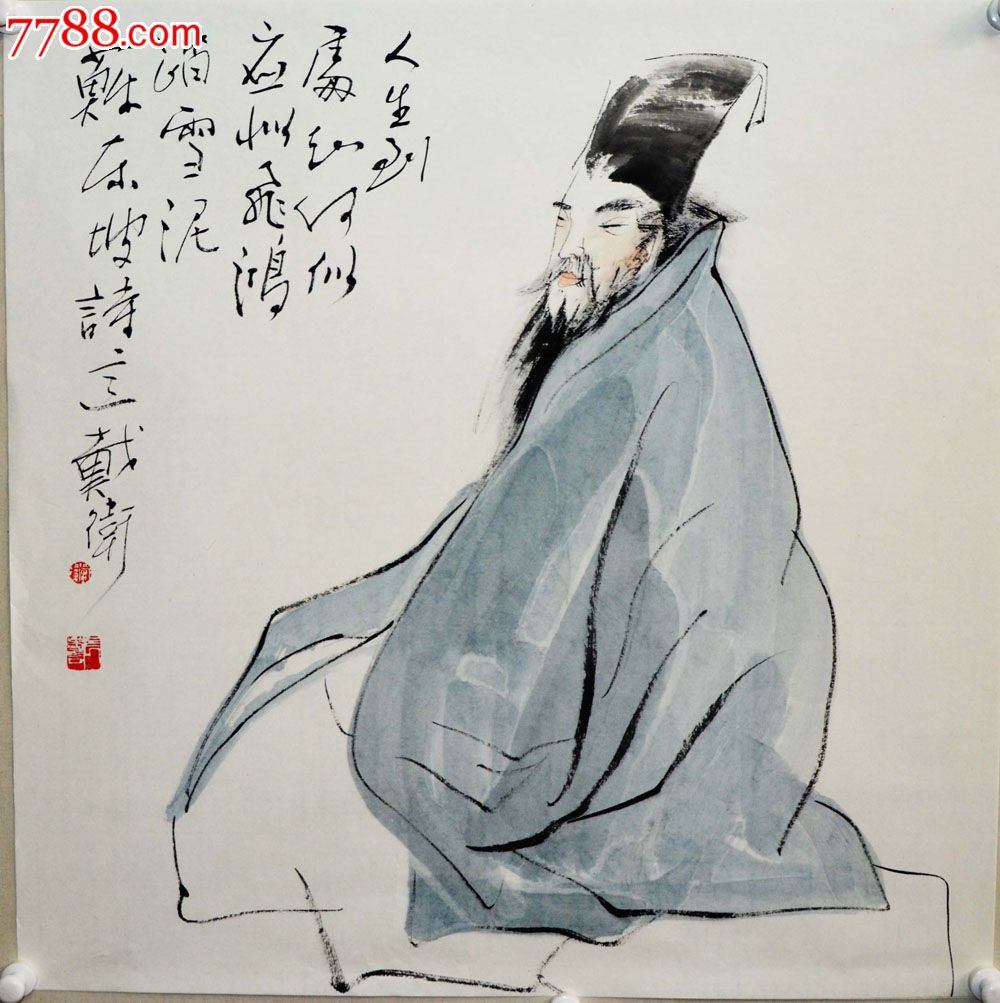 7788.com
人生到
處知何似
应似飛鴻
踏雪泥
蘇东坡詩意戴衛